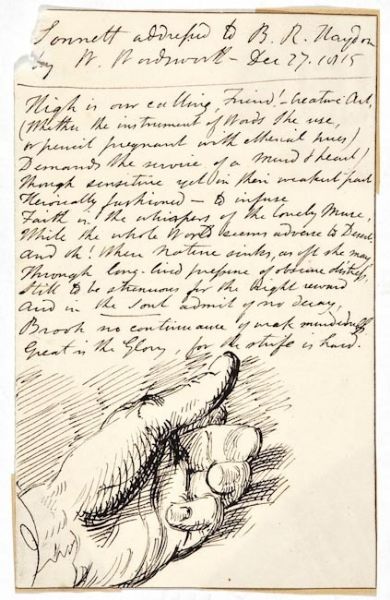 Sonnett addressed to B. R. Haydon
by W. Wordsworth - Dec 27. 1815
High is our calling, Friend! - Creative Art,
(Whether the instrument of Words she use,
or pencil pregnant with etherial hues)
Demands the service of a mind & heart)
Though sensitive yet in their weakest part
Heroically fashioned - to infuse
Faith in the whispers of the lonely Muse,
While the whole World seems adverse to Desert,
And oh! When Nature sinks, as oft she may
Through long-lived pressure of obscure distress,
Still to be strenuous for the bright reward
And in the Soul admit of no decay,
Brook no continuance of weak mindedness
Great is the Glory, for the strife is hard.